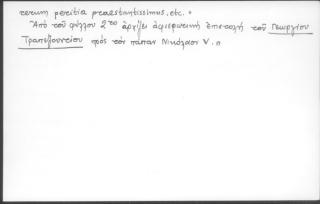 rerum peritia praestantissimus, etc. "
"Ἀπό τοῦ φύλλου 2ʳᵒ ἀρχίζει ἀφιερωτική ἐπιστολή τοῦ Γεωργίου
Τραπεζουντίου πρός τόν πάπαν Νικόλαον V. "